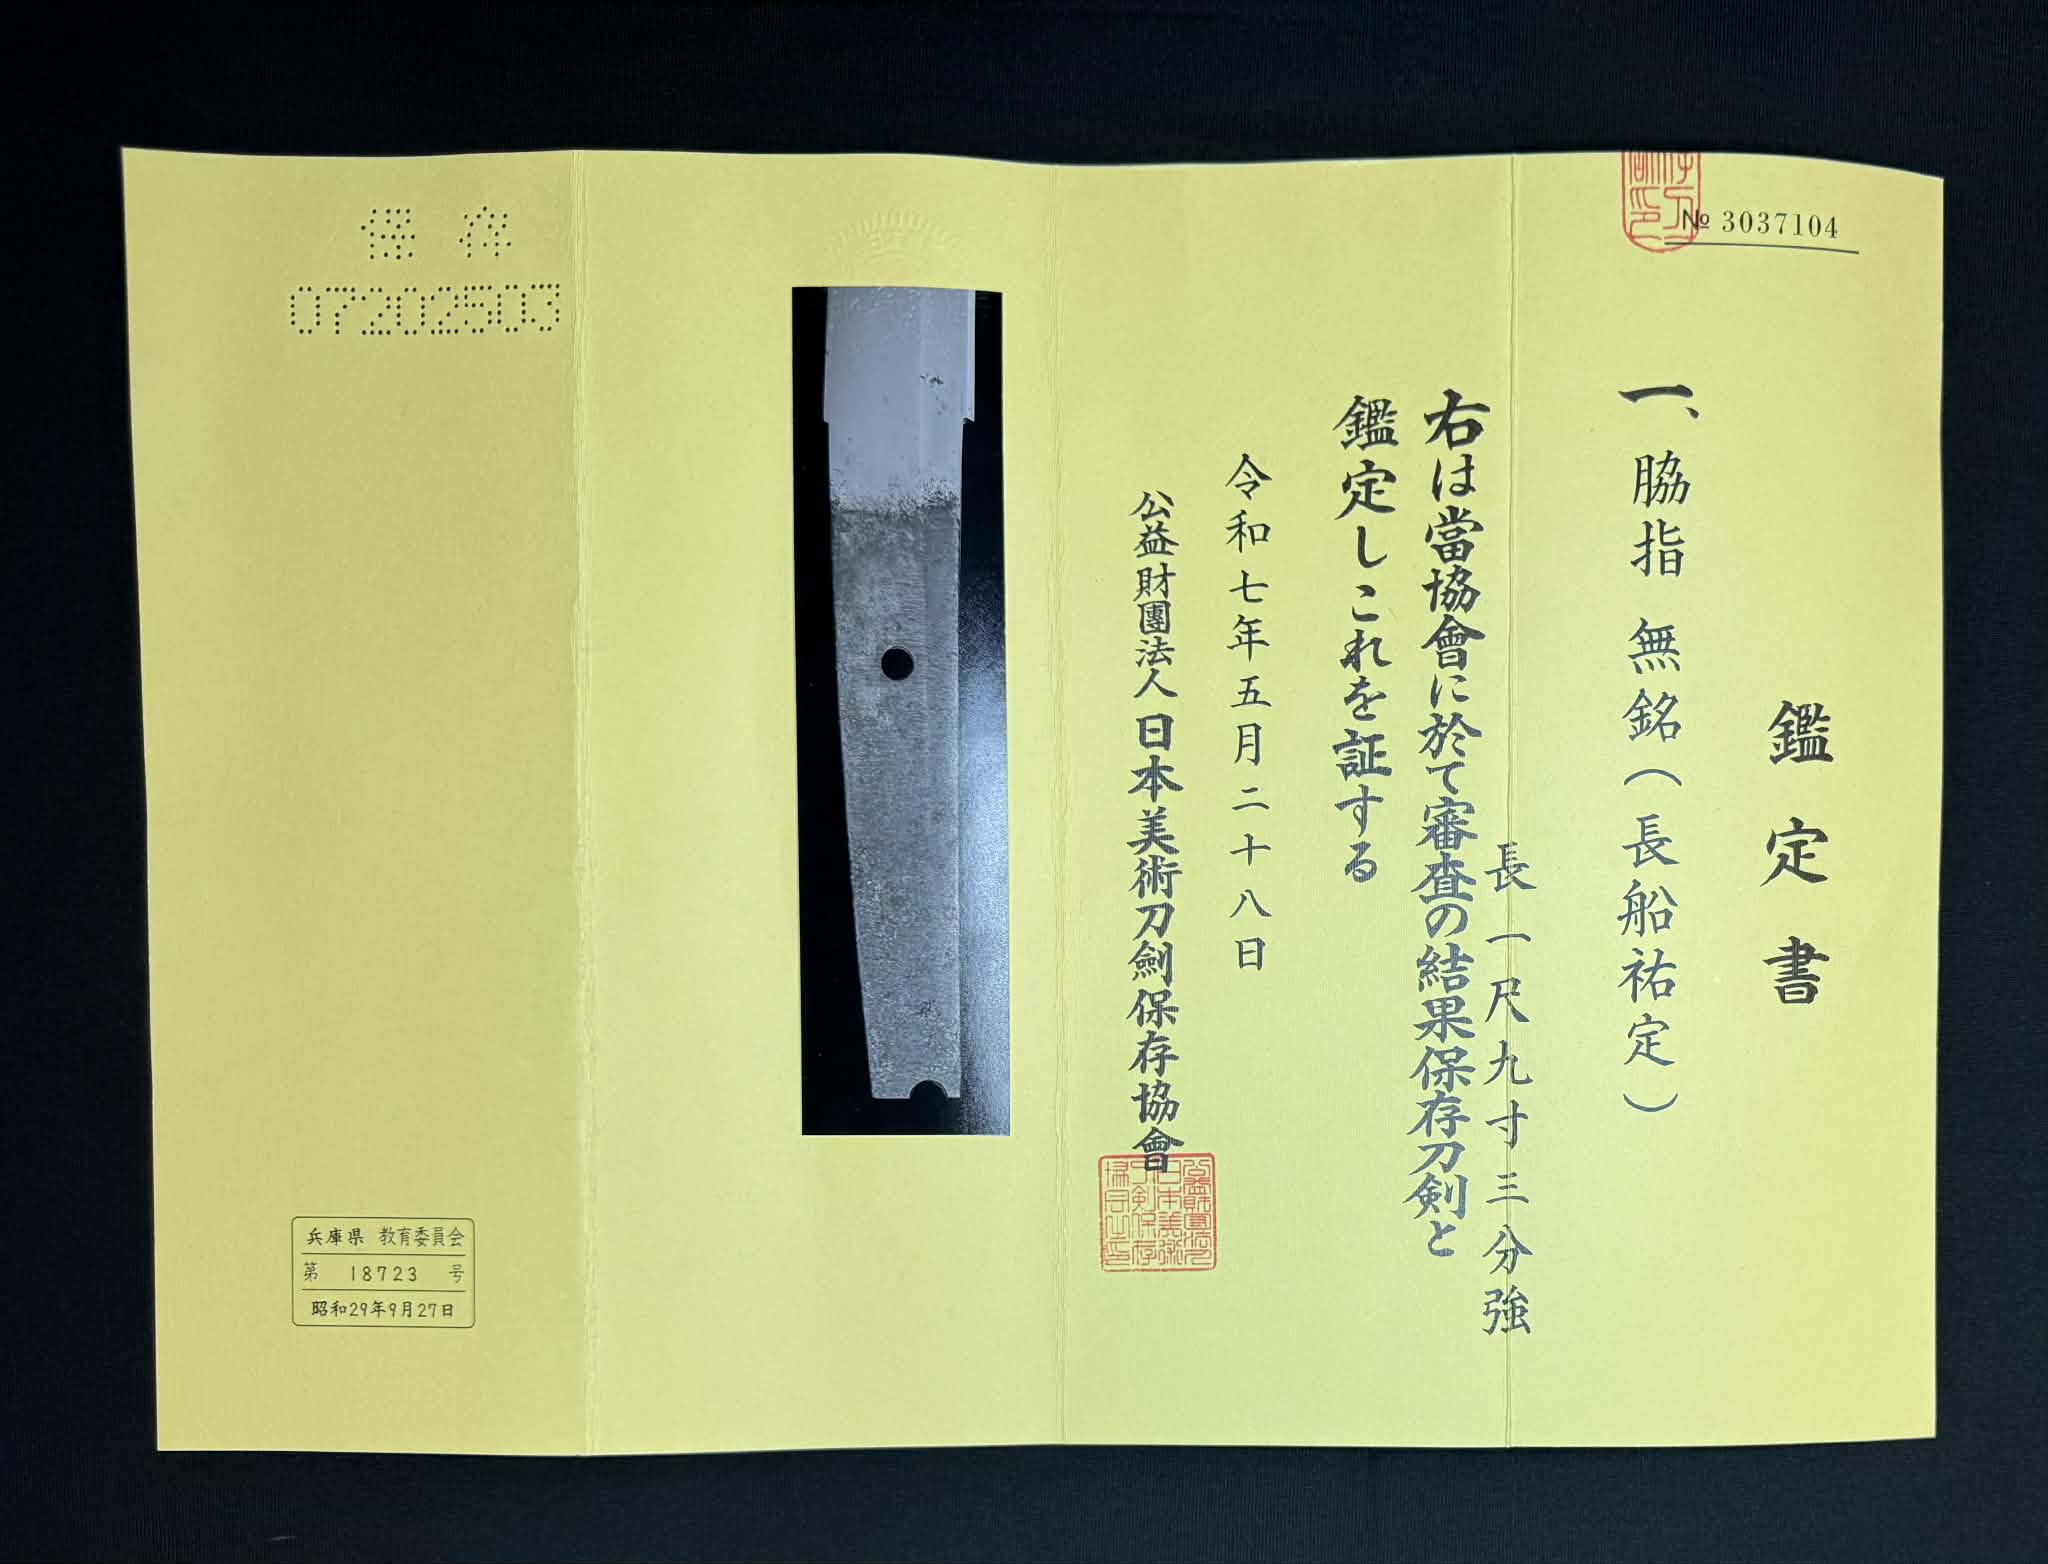 № 3037104
鑑定書
一、脇指 無銘(長船祐定)
長一尺九寸三分強
右は當協會に於て審査の結果保存刀剣と
鑑定しこれを証する
令和七年五月二十八日
公益財團法人日本美術刀劍保存協會
保存
07202503
兵庫県 教育委員会
第 18723 号
昭和29年9月27日